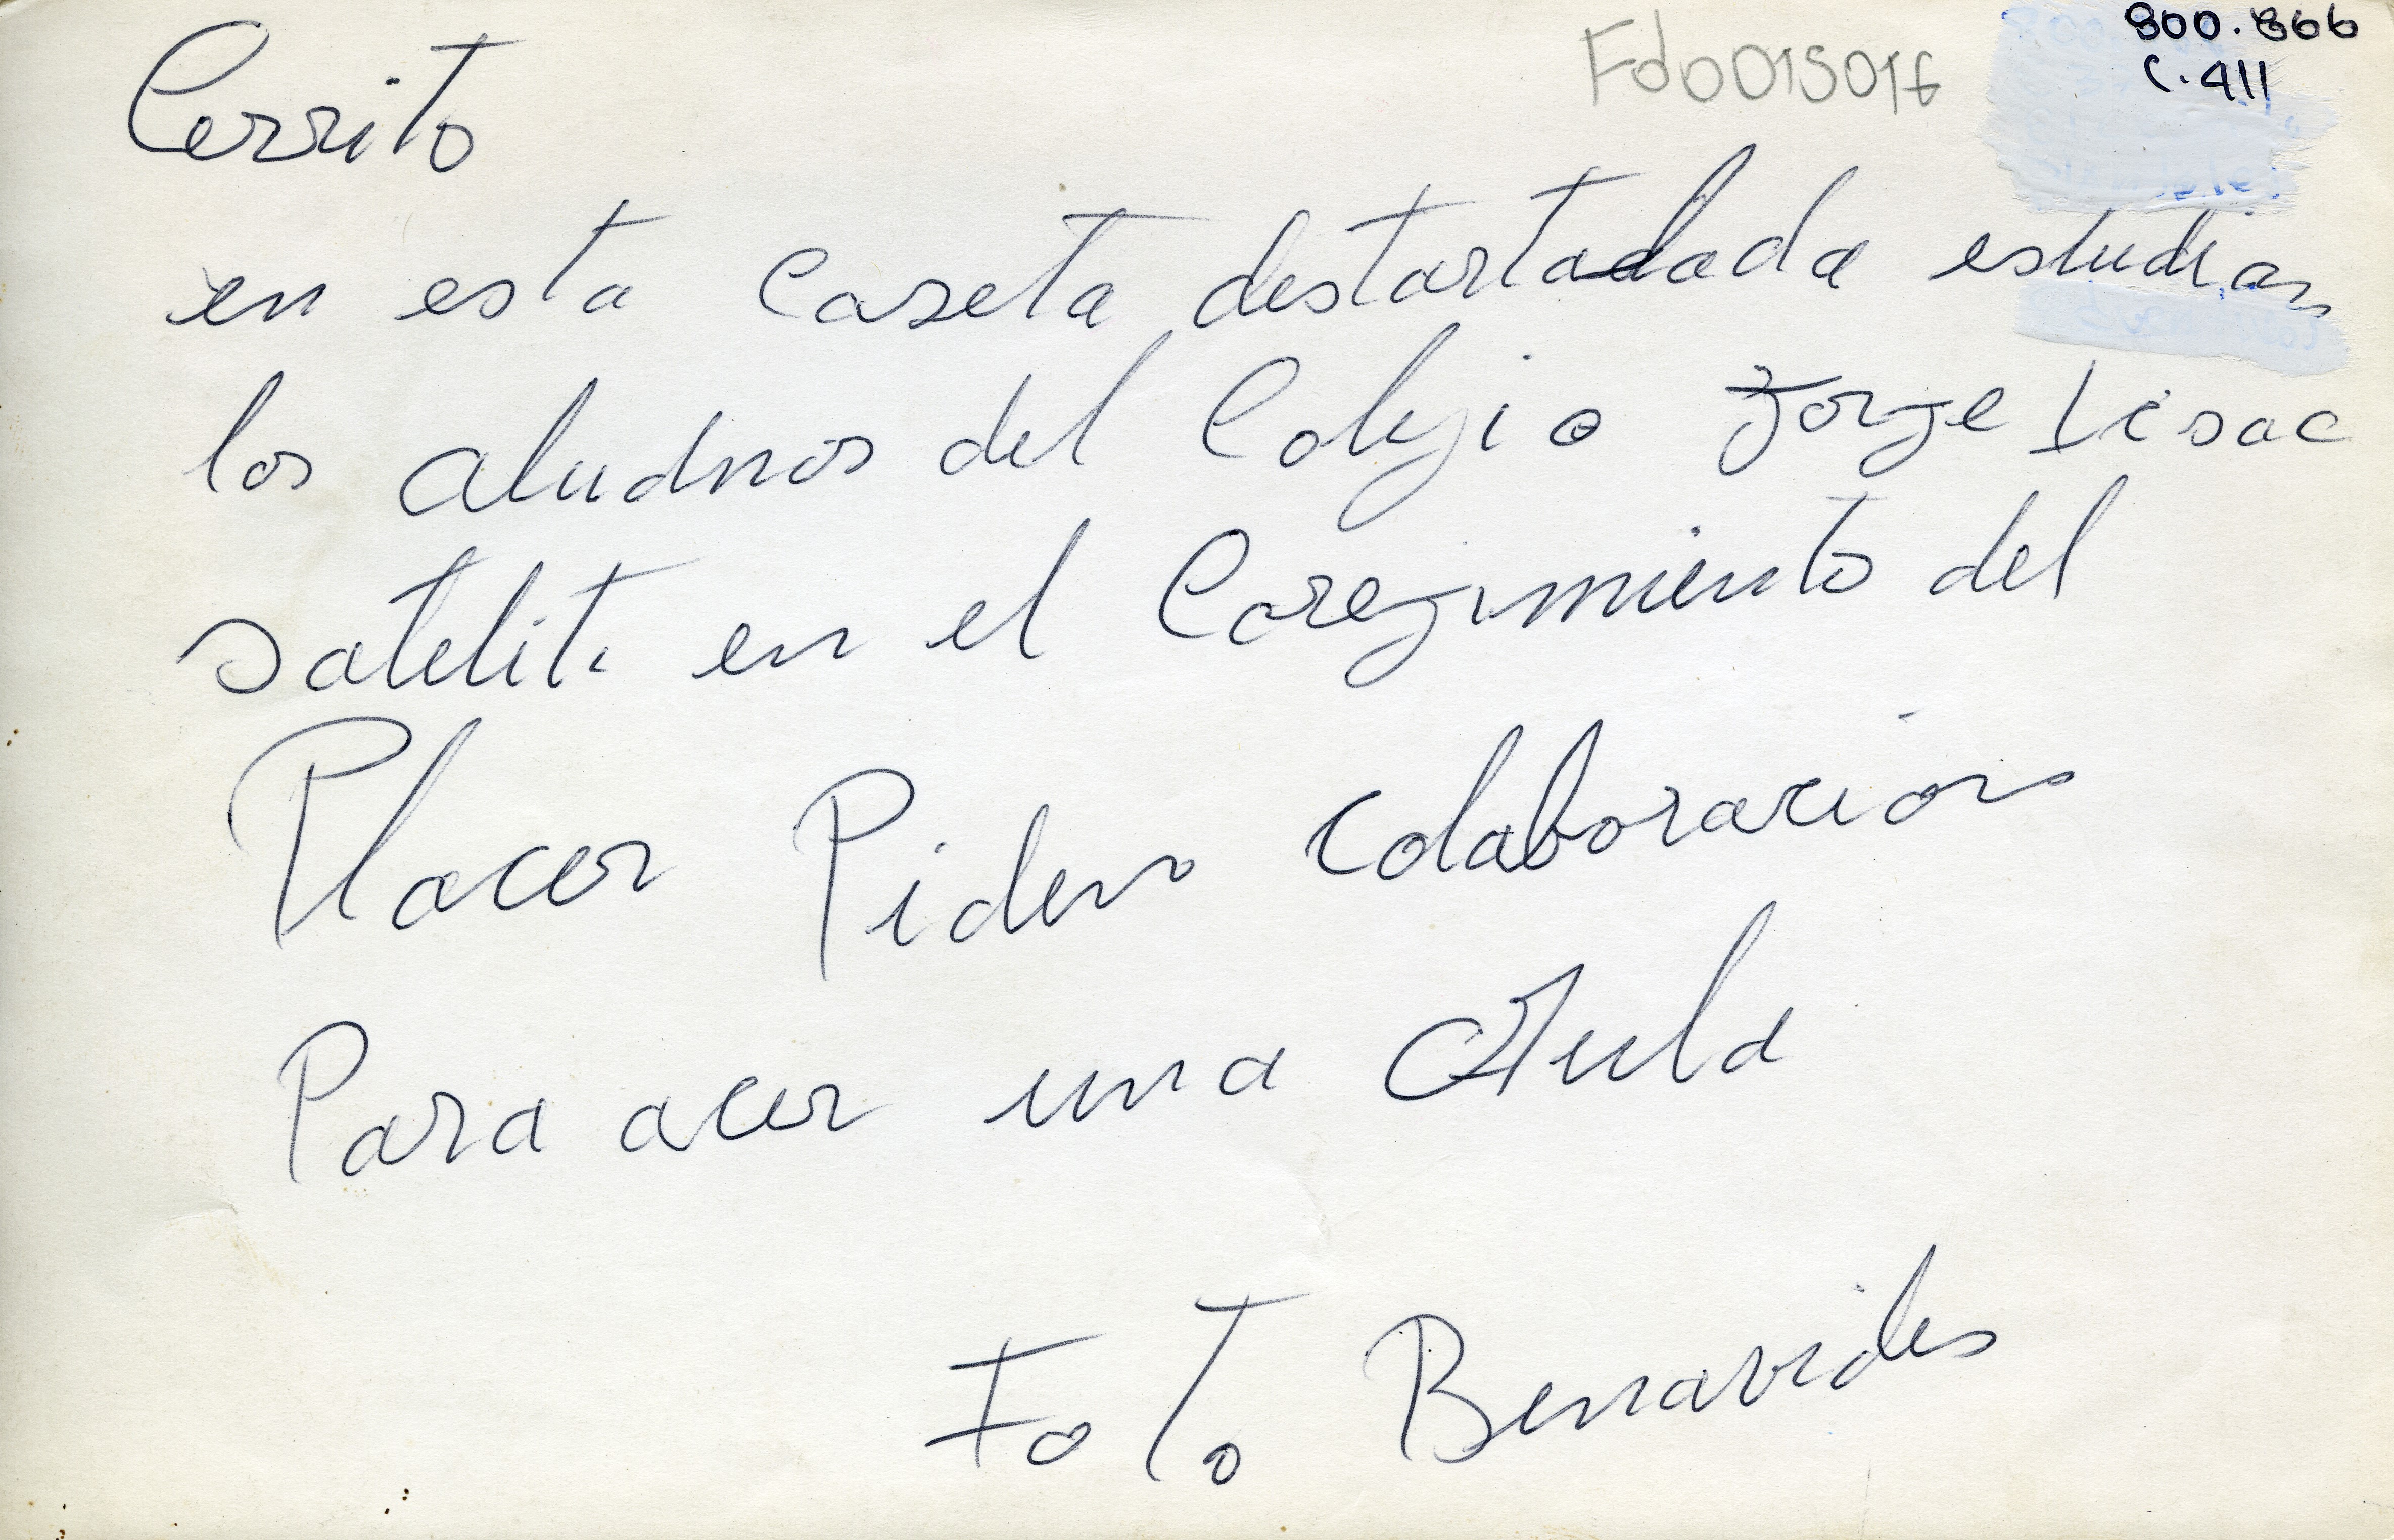 800.866
C.411
Fd0015016
Cerrito
en esta caseta destartadada estudian
los aludnos del Colegio Jorge Iisac
satelite en el Coregimiento del
Placer Piden colaboracion
Para acer una Aula
Foto Benavides